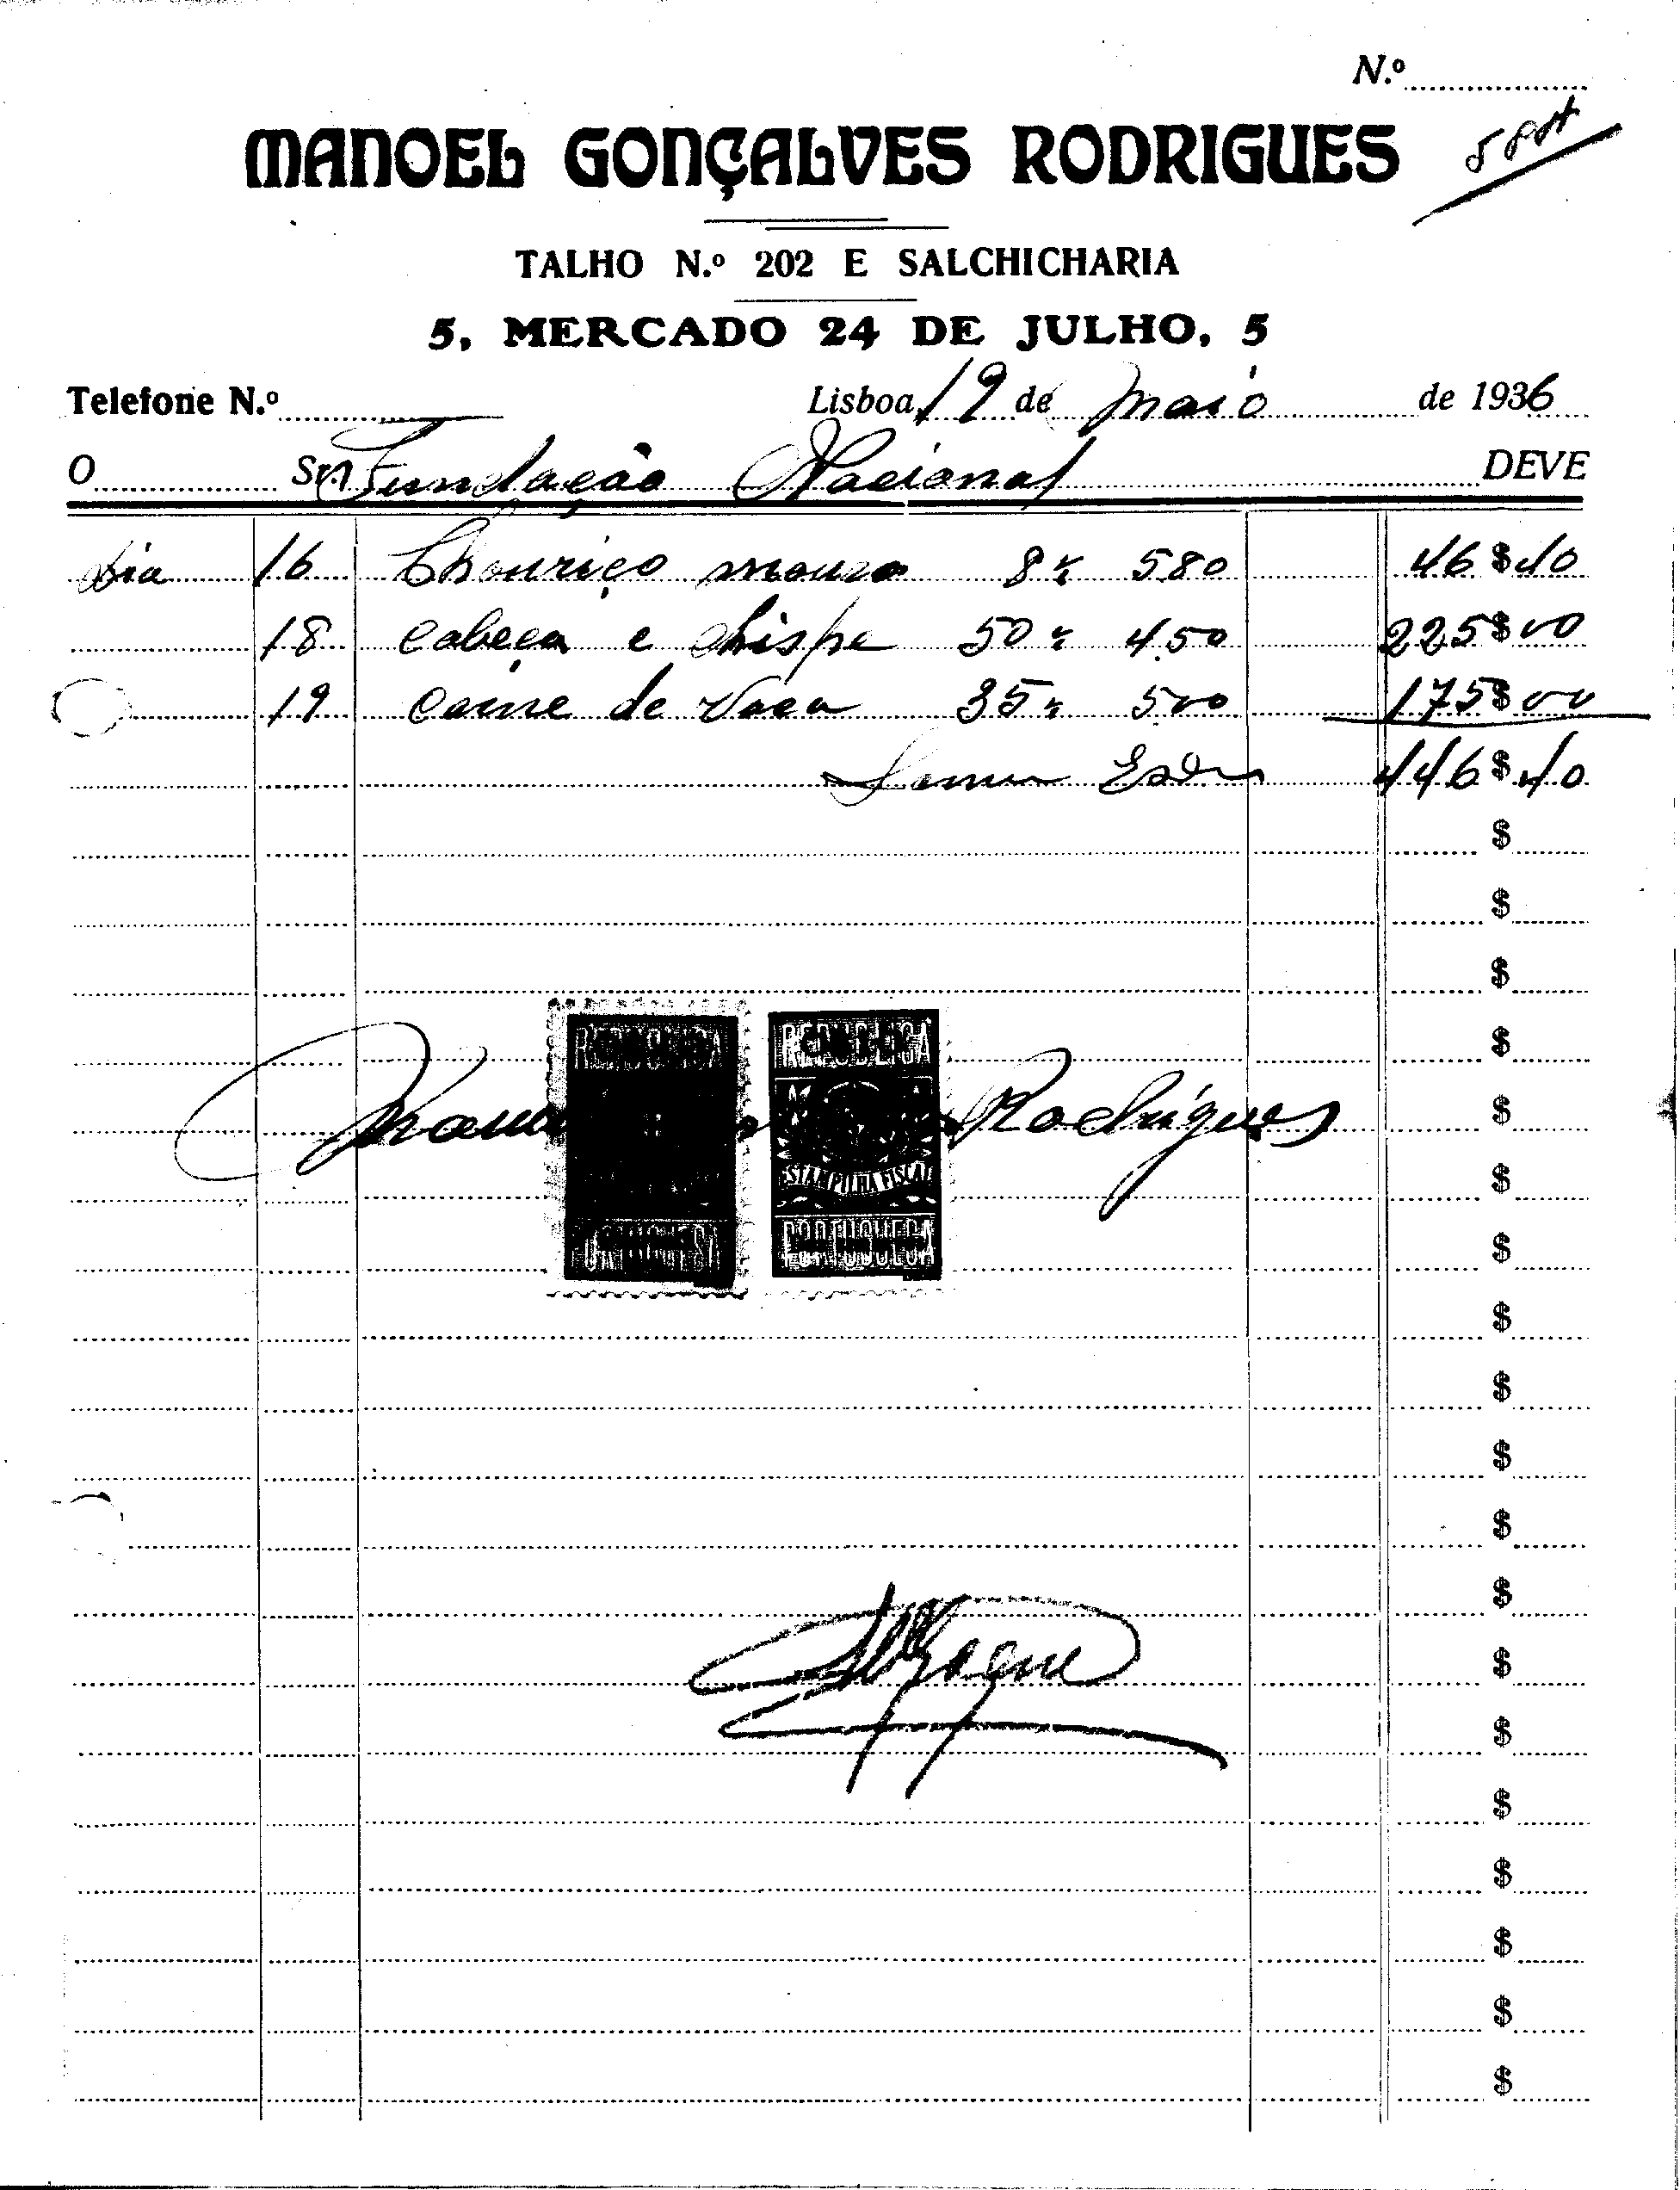 N.º
MANOEL GONÇALVES RODRIGUES
TALHO N.º 202 E SALCHICHARIA
5, MERCADO 24 DE JULHO, 5
Telefone N.º Lisboa, 19 de Maio de 1936
O Sr. Fundação Nacional DEVE
dia 16 Chouriço mouro 8 k 580 46$40
18 Cabeça e chispe 50 k 4.50 225$00
19 Carne de Vaca 35 k 500 175$00
Soma Esc 446$40
$
$
$
$
$
$
$
$
$
$
$
$
$
$
$
$
$
$
$
REPUBLICA REPUBLICA
Rodrigues
ESTAMPILHA FISCAL
PORTUGUESA PORTUGUESA